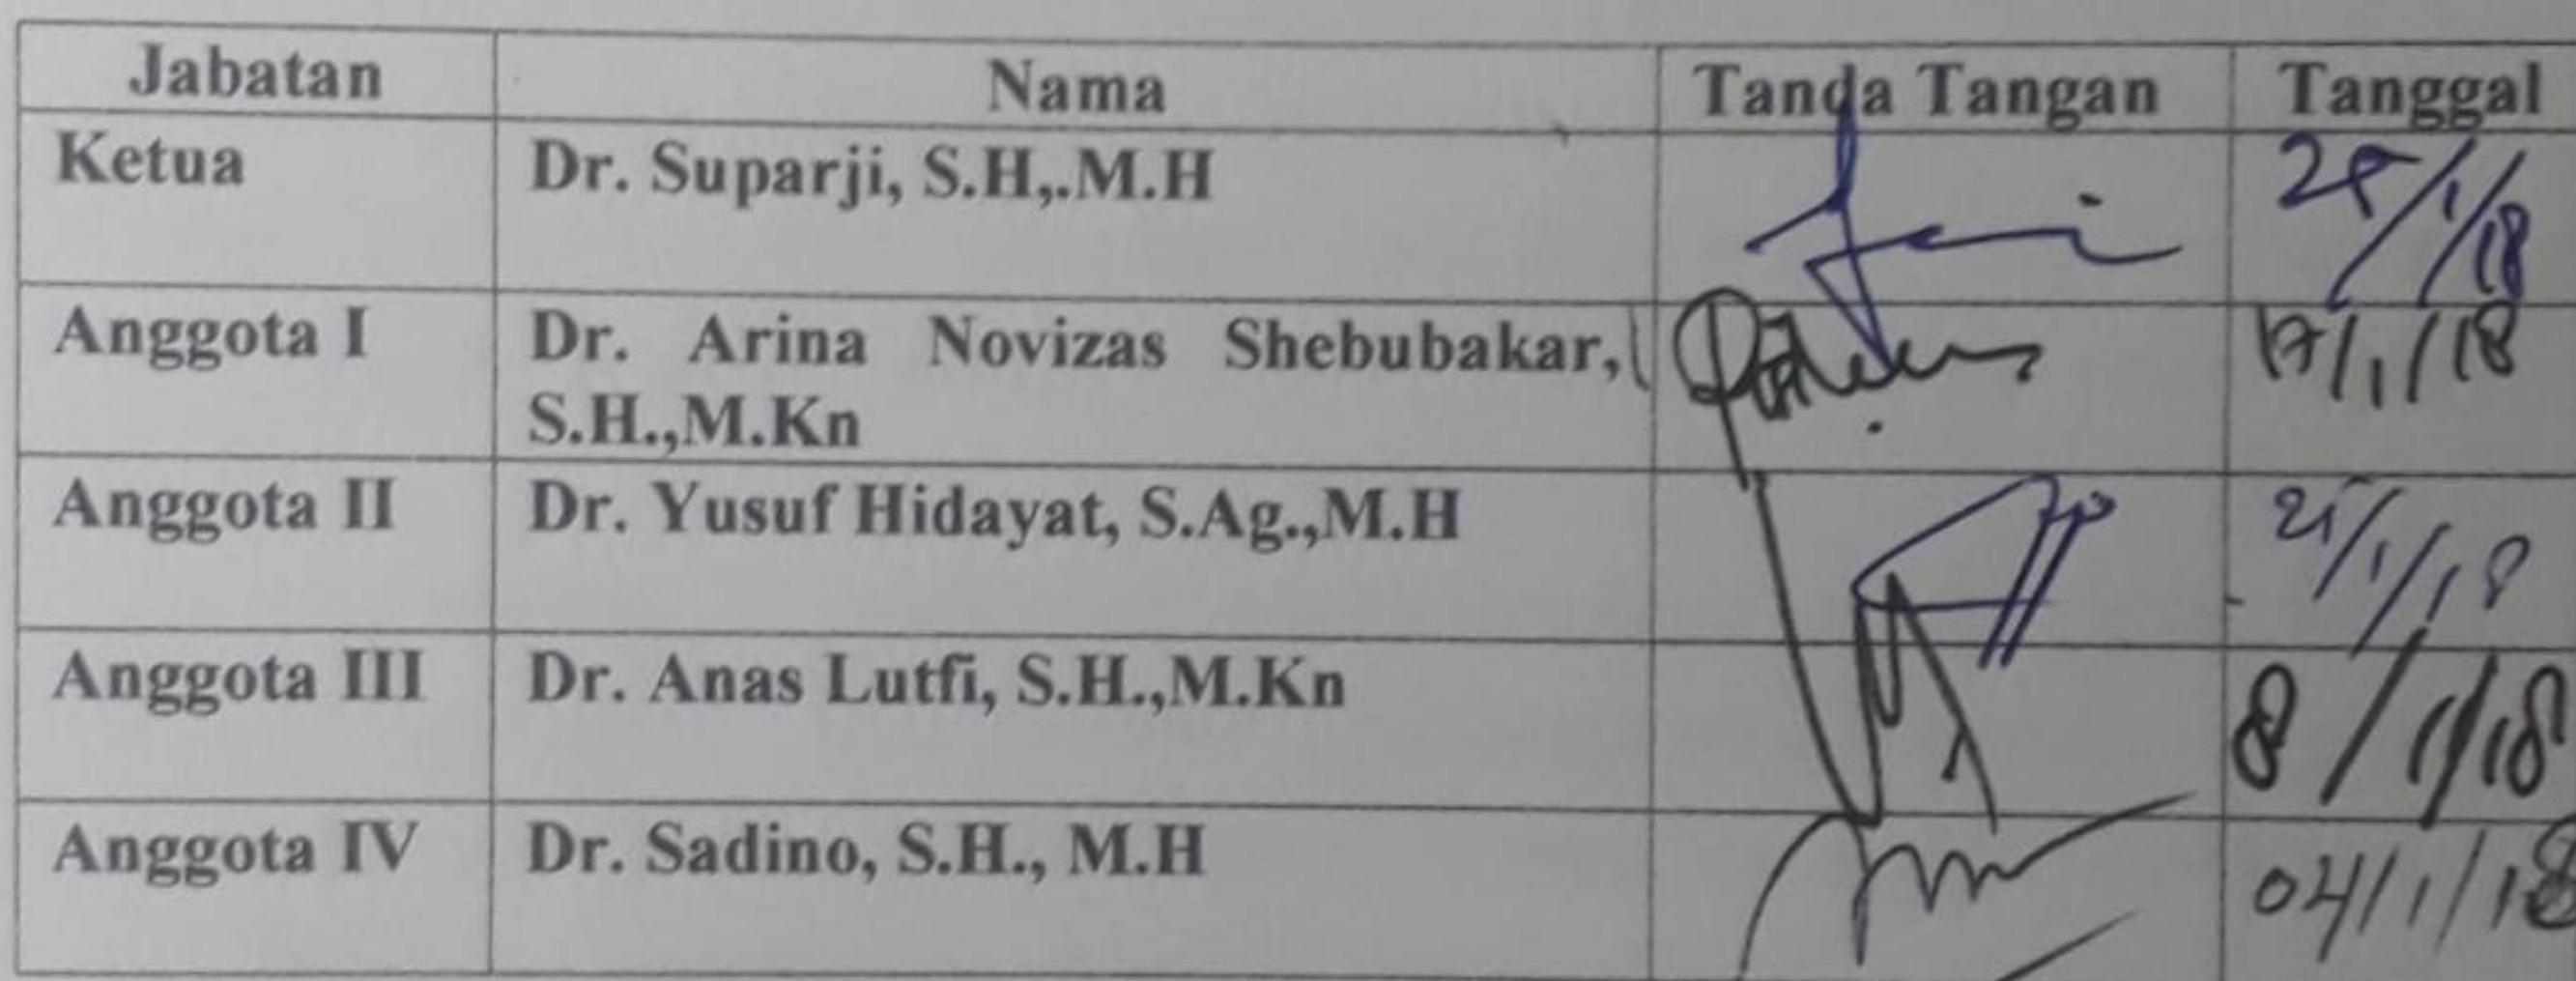 Jabatan Nama Tanda Tangan Tanggal
Ketua Dr. Suparji, S.H,.M.H
Anggota I Dr. Arina Novizas Shebubakar, 17/1/18
S.H.,M.Kn
Anggota II Dr. Yusuf Hidayat, S.Ag.,M.H 21/1/18
Anggota III Dr. Anas Lutfi, S.H.,M.Kn 8/1/18
Anggota IV Dr. Sadino, S.H., M.H 04/1/18